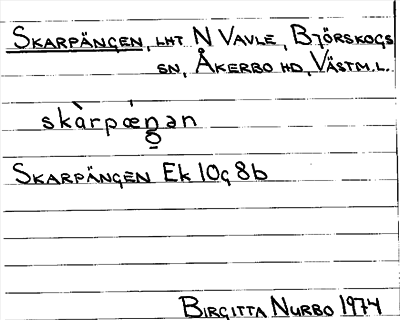 SKARPÄNGEN, LHT N VAVLE, BJÖRSKOGS
SN, ÅKERBO HD, VÄSTM.L.
skàrpæŋ̱ən
SKARPÄNGEN Ek 10g 8b
BIRGITTA NURBO 1974